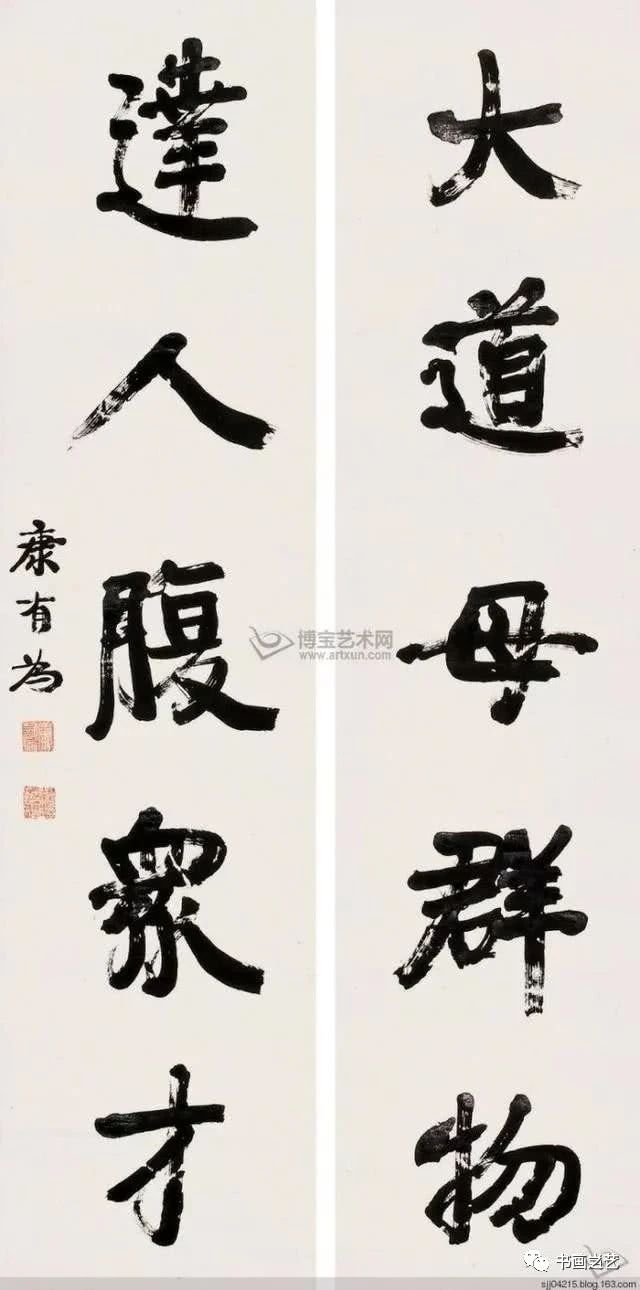 大道母群物
達人腹眾才
康有為
博宝艺术网
www.artxun.com
书画之艺
sjj04215.blog.163.com